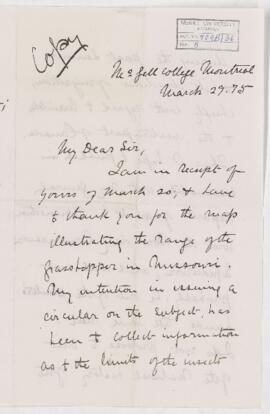 Copy
McGILL UNIVERSITY
ARCHIVES
ACC. NO.
REF.
McGill College Montreal
March 29. 75
My Dear Sir,
I am in receipt of
yours of March 20, & have
to thank you for the map
illustrating the range of the
grasshopper in Missouri.
My intention in issuing a
circular on the subject, has
been to collect information
as to the limits of the insect